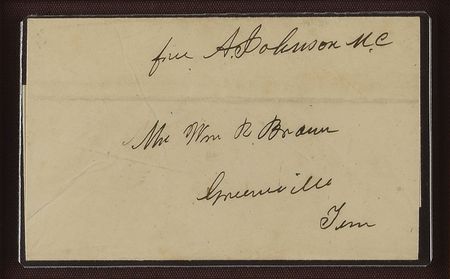 free A. Johnson M.C
Mr Wm R. Brown
Greeneville
Tenn